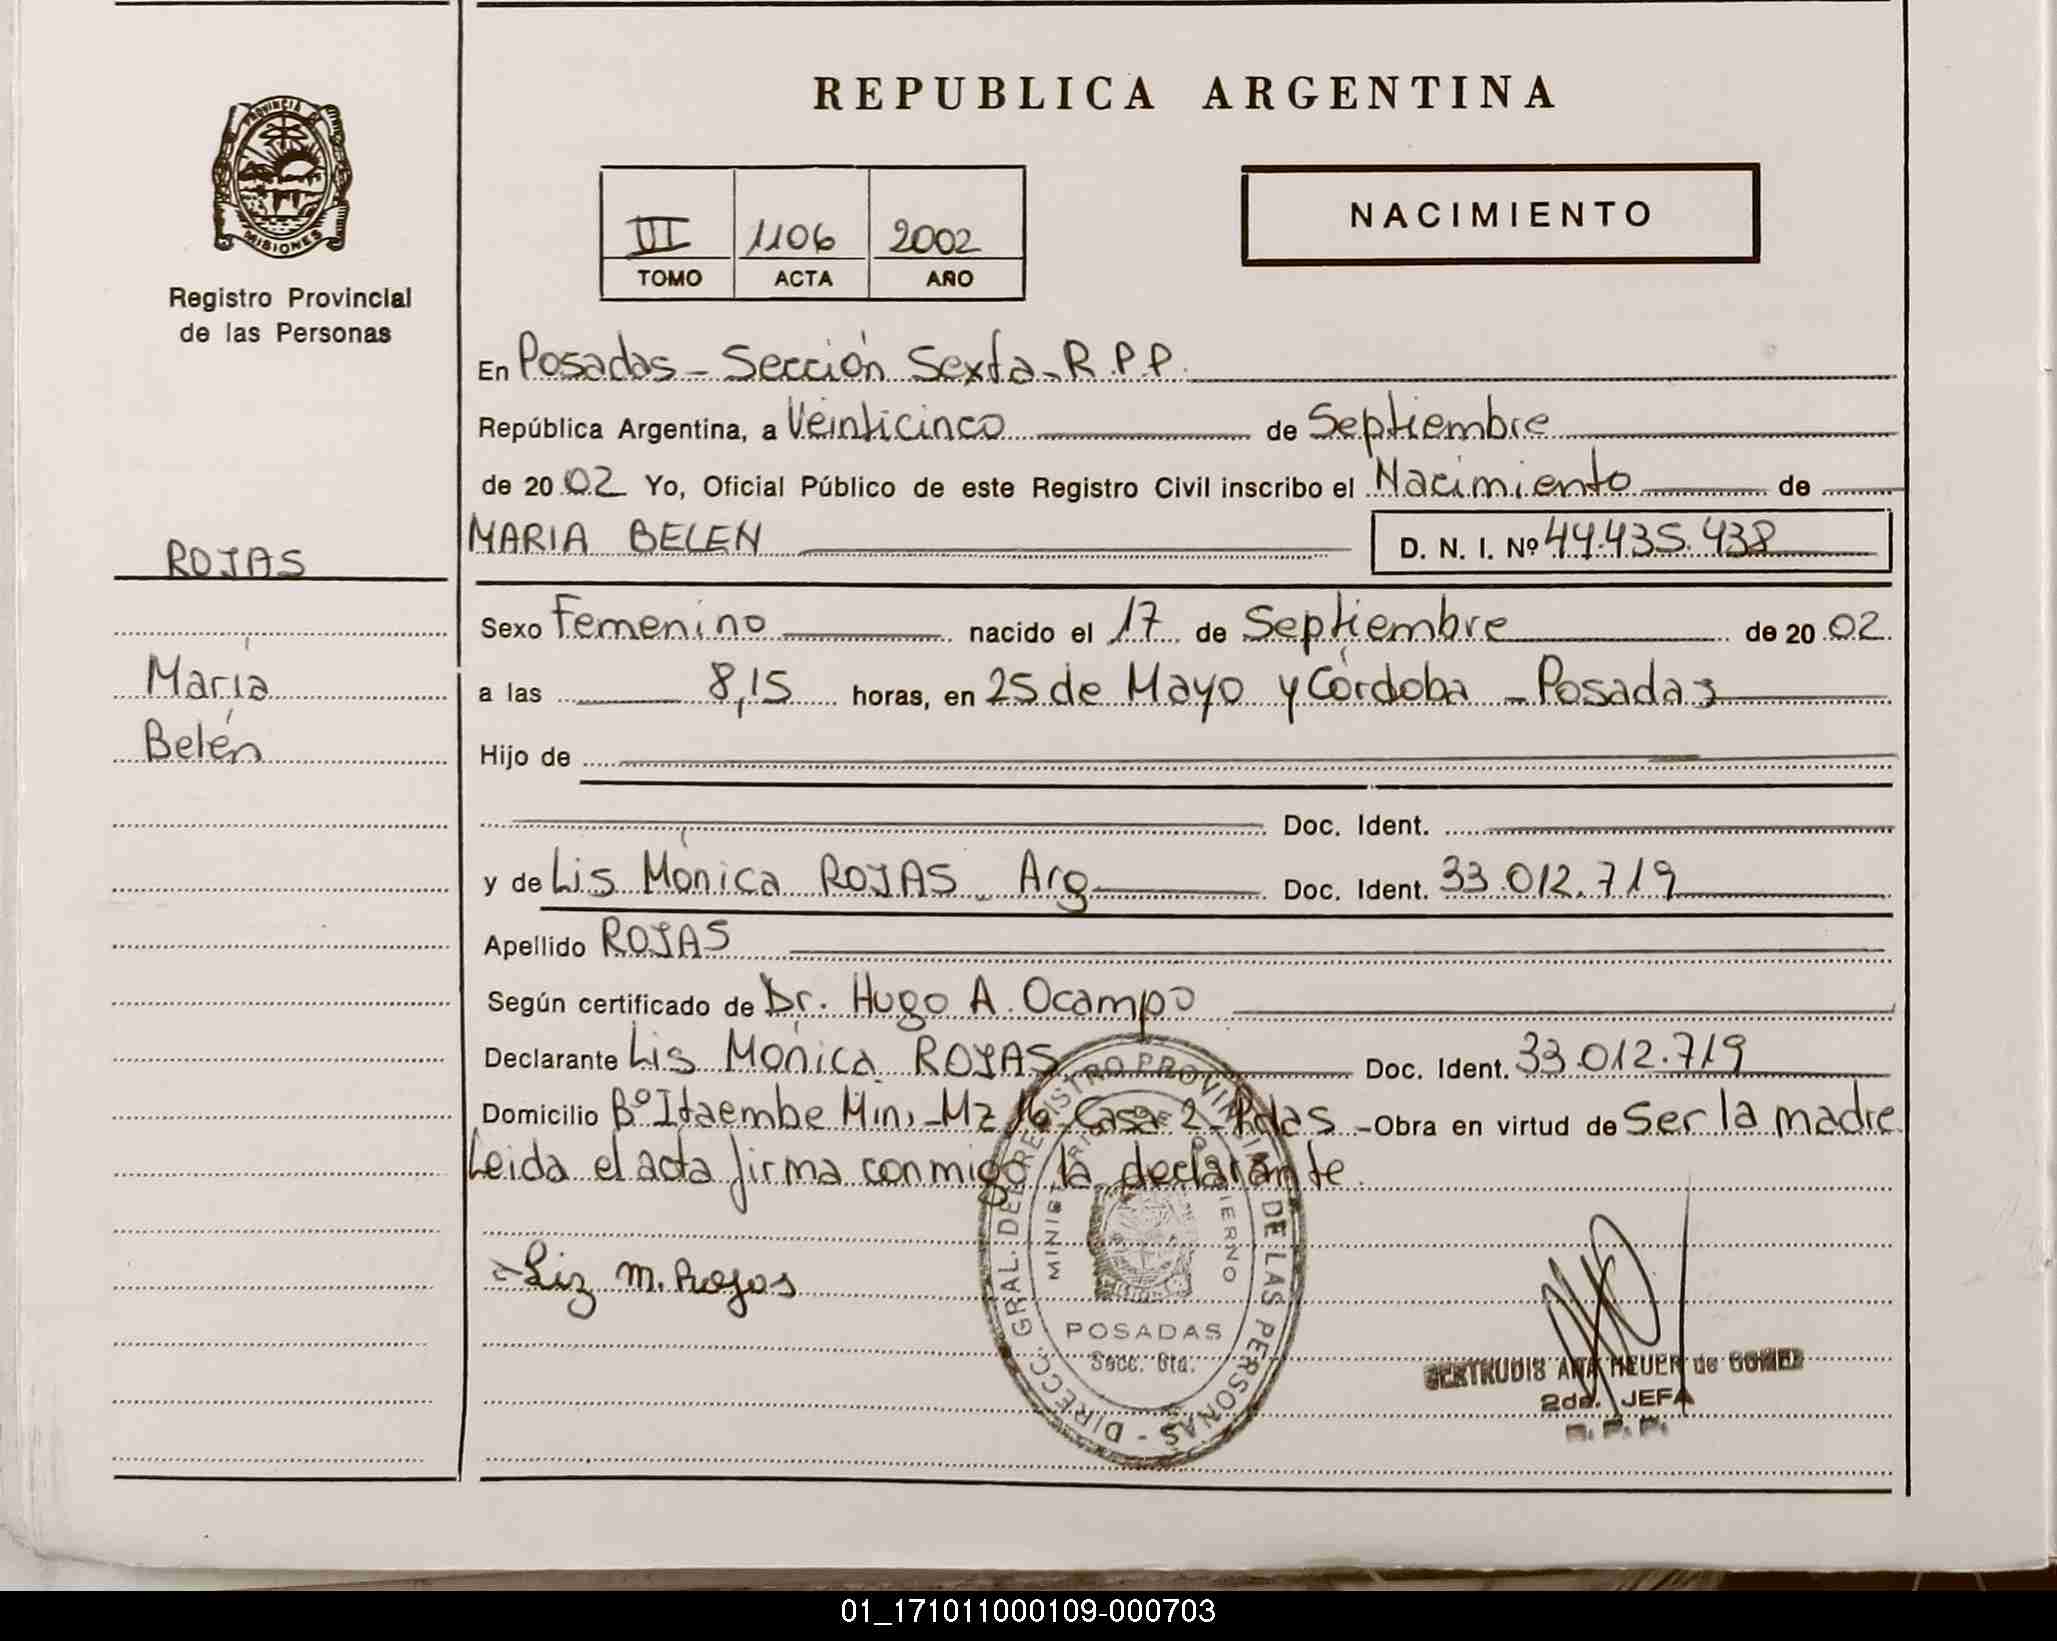 REPUBLICA ARGENTINA
PROVINCIA
MISIONES
Registro Provincial
de las Personas
III 1106 2002
TOMO ACTA AÑO
NACIMIENTO
En Posadas - Sección Sexta - R.P.P.
República Argentina, a Veinticinco de Septiembre
de 2002 Yo, Oficial Público de este Registro Civil inscribo el Nacimiento de
MARIA BELEN D. N. I. Nº 44.435.438
ROJAS
María
Belén
Sexo Femenino nacido el 17 de Septiembre de 2002
a las 8,15 horas, en 25 de Mayo y Córdoba - Posadas
Hijo de
Doc. Ident.
y de Lis Mónica ROJAS - Arg. Doc. Ident. 33.012.719
Apellido ROJAS
Según certificado de Dr. Hugo A. Ocampo
Declarante Lis Mónica ROJAS Doc. Ident. 33.012.719
Domicilio Bº Itaembe Mini - Mz 16 - Casa 2 - Pdas - Obra en virtud de Ser la madre
Leida el acta firma conmigo la declarante.
Liz M. Rojas
DIRECC. GRAL. DEL REGISTRO PROVINCIAL DE LAS PERSONAS -
POSADAS
Secc. 6ta.
GERTRUDIS ANA HEUER de GOMEZ
2da. JEFA
R. P. P.
01_171011000109-000703